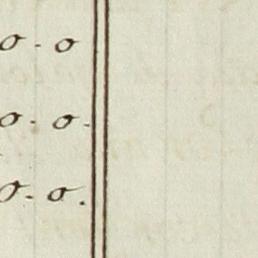 o . o
o . o .
o . o .